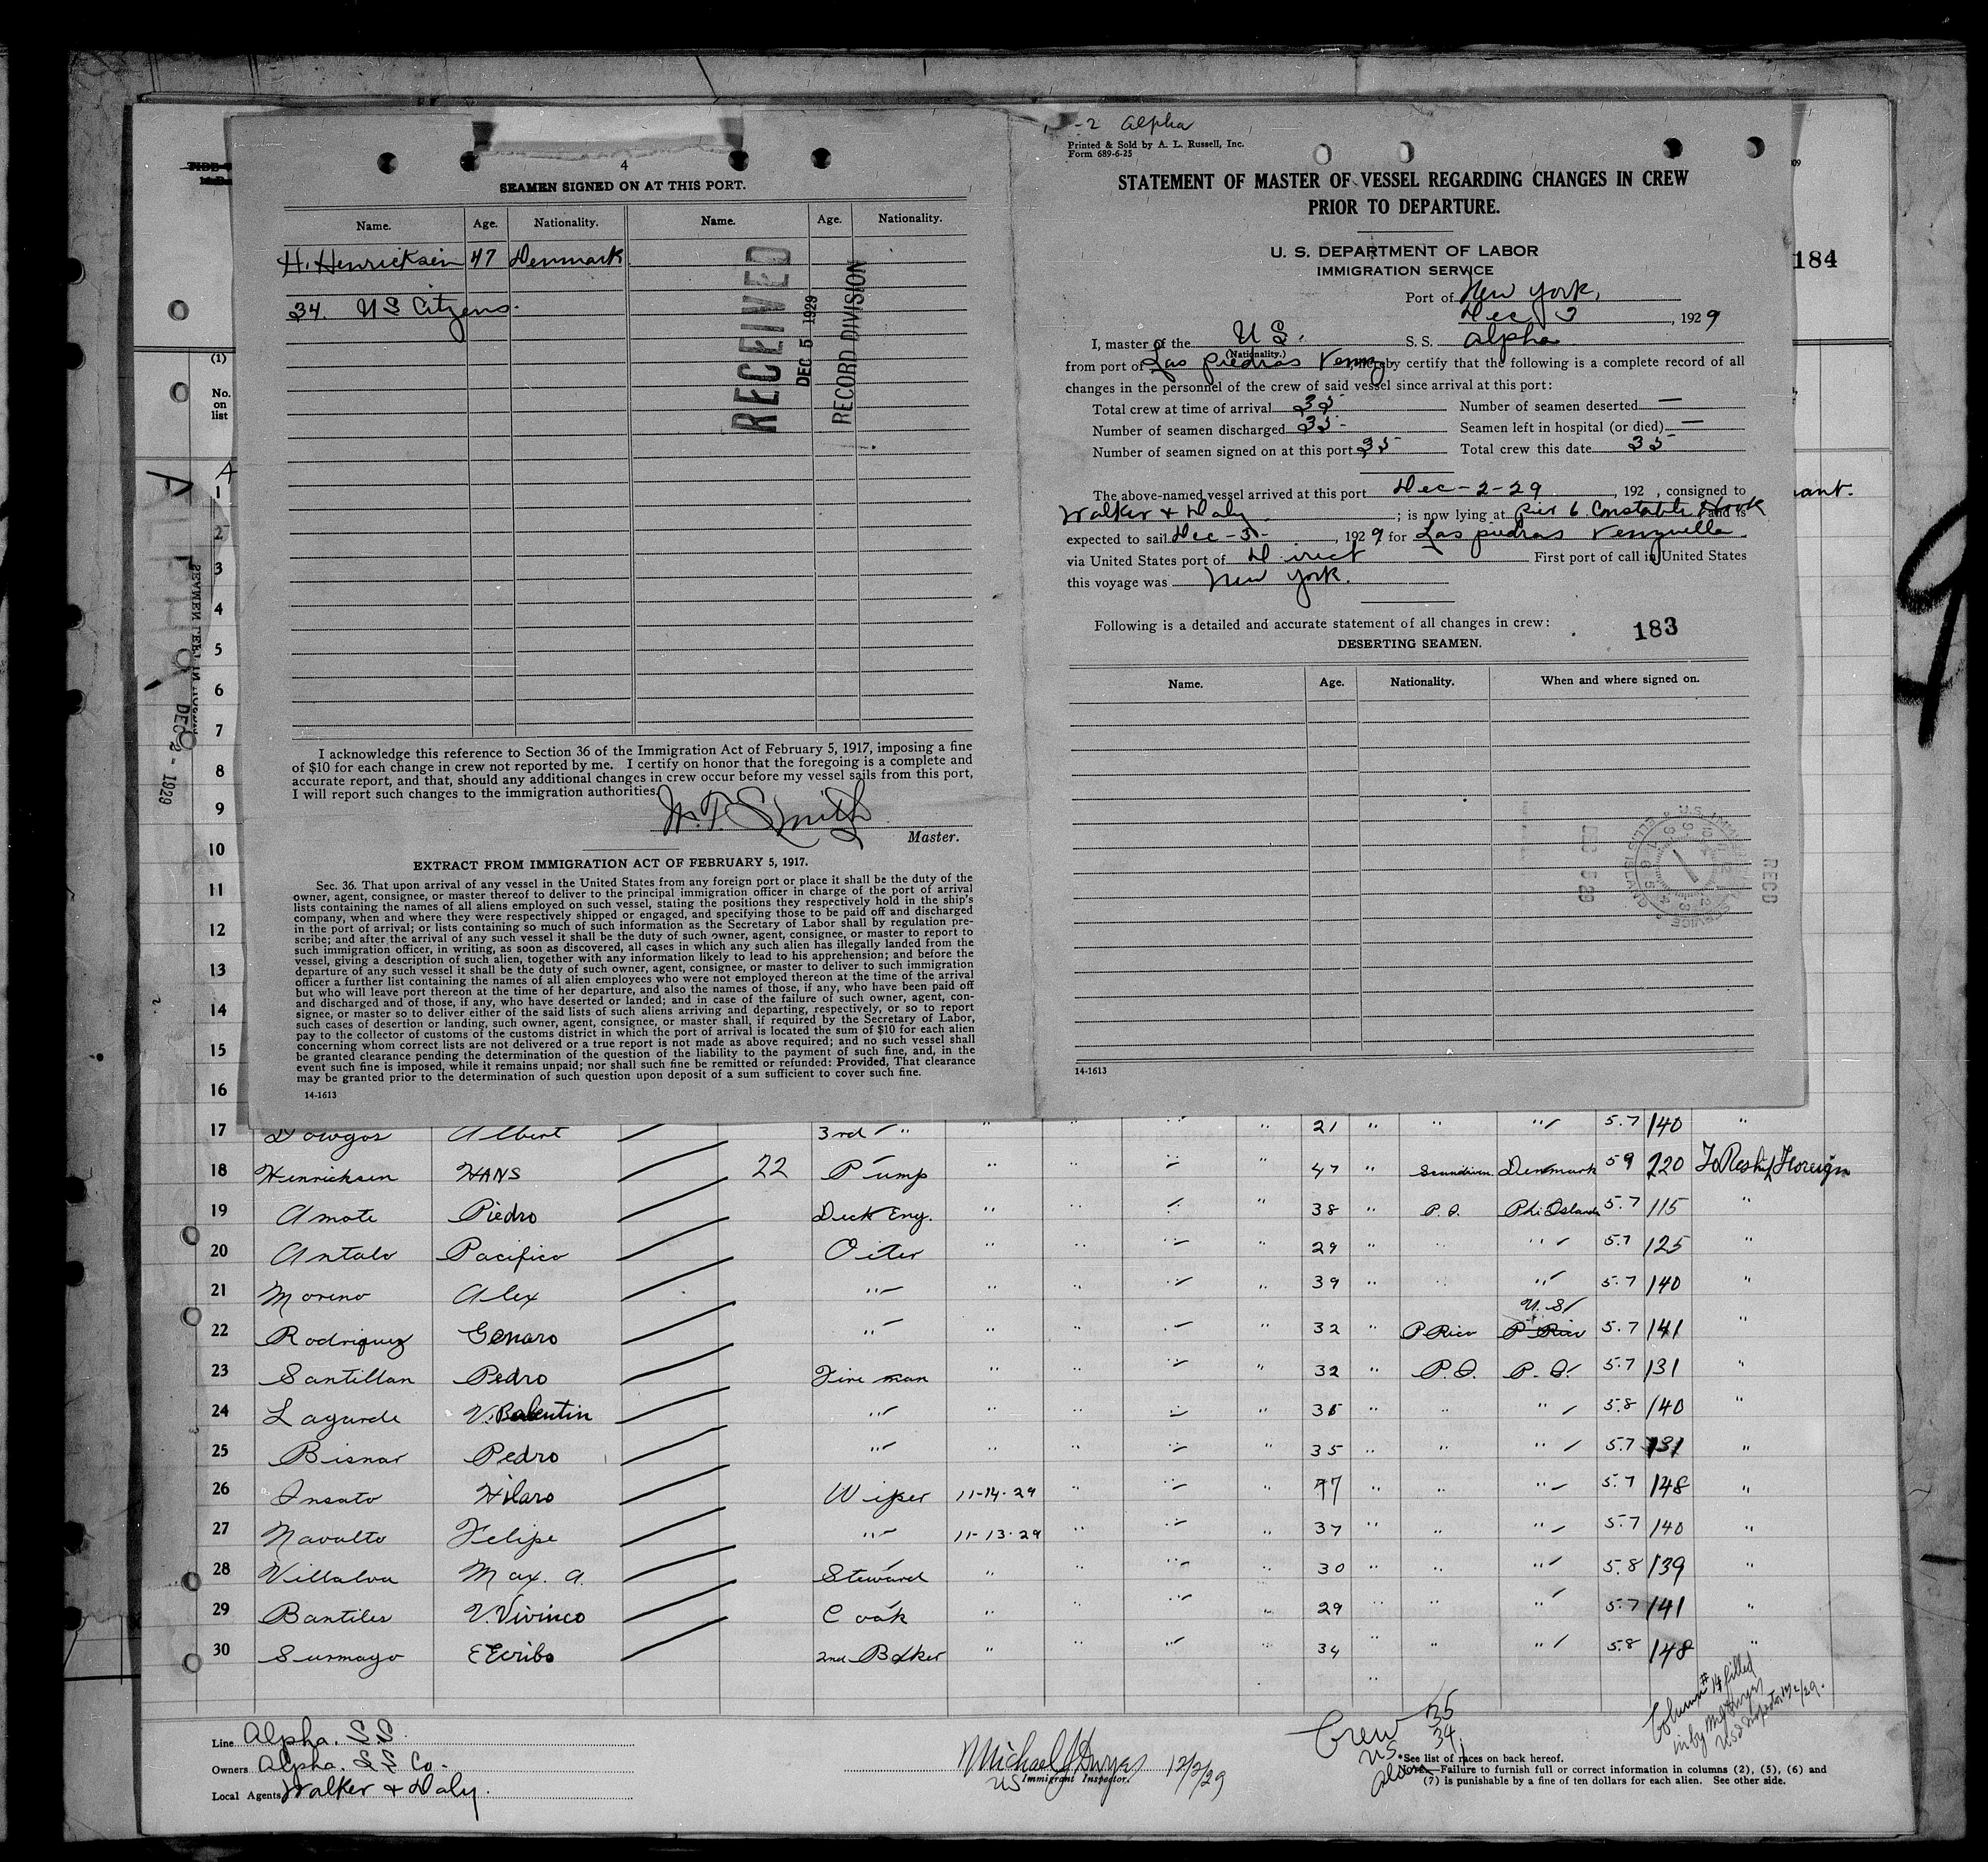 4
SEAMEN SIGNED ON AT THIS PORT.
Name. Age. Nationality. Name. Age. Nationality.
H. Henricksen 47 Denmark
34. US Citizens.
RECEIVED
DEC 5 1929
RECORD DIVISION
I acknowledge this reference to Section 36 of the Immigration Act of February 5, 1917, imposing a fine
of $10 for each change in crew not reported by me. I certify on honor that the foregoing is a complete and
accurate report, and that, should any additional changes in crew occur before my vessel sails from this port,
I will report such changes to the immigration authorities.
M. T. Smith
Master.
EXTRACT FROM IMMIGRATION ACT OF FEBRUARY 5, 1917.
Sec. 36. That upon arrival of any vessel in the United States from any foreign port or place it shall be the duty of the
owner, agent, consignee, or master thereof to deliver to the principal immigration officer in charge of the port of arrival
lists containing the names of all aliens employed on such vessel, stating the positions they respectively hold in the ship's
company, when and where they were respectively shipped or engaged, and specifying those to be paid off and discharged
in the port of arrival; or lists containing so much of such information as the Secretary of Labor shall by regulation pre-
scribe; and after the arrival of any such vessel it shall be the duty of such owner, agent, consignee, or master to report to
such immigration officer, in writing, as soon as discovered, all cases in which any such alien has illegally landed from the
vessel, giving a description of such alien, together with any information likely to lead to his apprehension; and before the
departure of any such vessel it shall be the duty of such owner, agent, consignee, or master to deliver to such immigration
officer a further list containing the names of all alien employees who were not employed thereon at the time of the arrival
but who will leave port thereon at the time of her departure, and also the names of those, if any, who have been paid off
and discharged and of those, if any, who have deserted or landed; and in case of the failure of such owner, agent, con-
signee, or master so to deliver either of the said lists of such aliens arriving and departing, respectively, or so to report
such cases of desertion or landing, such owner, agent, consignee, or master shall, if required by the Secretary of Labor,
pay to the collector of customs of the customs district in which the port of arrival is located the sum of $10 for each alien
concerning whom correct lists are not delivered or a true report is not made as above required; and no such vessel shall
be granted clearance pending the determination of the question of the liability to the payment of such fine, and, in the
event such fine is imposed, while it remains unpaid; nor shall such fine be remitted or refunded: Provided, That clearance
may be granted prior to the determination of such question upon deposit of a sum sufficient to cover such fine.
14-1613
-2 Alpha
Printed & Sold by A. L. Russell, Inc.
Form 689-6-25
STATEMENT OF MASTER OF VESSEL REGARDING CHANGES IN CREW
PRIOR TO DEPARTURE.
U. S. DEPARTMENT OF LABOR
IMMIGRATION SERVICE
Port of New York,
Dec 3, 1929
I, master of the U S. S. S. Alpha
(Nationality.)
from port of Las Piedras Venz, hereby certify that the following is a complete record of all
changes in the personnel of the crew of said vessel since arrival at this port:
Total crew at time of arrival 35 Number of seamen deserted —
Number of seamen discharged 35 - Seamen left in hospital (or died) —
Number of seamen signed on at this port 35 Total crew this date 35
The above-named vessel arrived at this port Dec-2-29, 192 , consigned to
Walker & Daly ; is now lying at Pier 6 Constable Hook and is
expected to sail Dec-3-, 1929 for Las Piedras Venzuella
via United States port of Direct First port of call in United States
this voyage was New York.
Following is a detailed and accurate statement of all changes in crew:
183
DESERTING SEAMEN.
Name. Age. Nationality. When and where signed on.
REC'D
14-1613
184
(1)
No.
on
list
DEC 2 - 1929
1
2
3
4
5
6
7
8
9
10
11
12
13
14
15
16
17 Albert 3rd " " " " " 21 " " " 5.7 140 "
18 Henricksen HANS 22 Pump " " " " 47 " Scandivn. Denmark 59 220 To Reship Foreign
19 Amote Piedro Deck Eng. " " " " 38 " P.I. Phi. Islands 5.7 115 "
20 Antalo Pacifico Oiler " " " " 29 " " " 5.7 125 "
21 Moreno Alex " " " " " 39 " " " 5.7 140 "
U.S.
22 Rodriquez Genaro " " " " " 32 " P Rico P. Rico 5.7 141 "
23 Santillan Pedro Fireman " " " " 32 " P.I. P.I. 5.7 131 "
24 Lagarde V. Balentin " " " " " 36 " " " 5.8 140 "
25 Bisnar Pedro " " " " " 35 " " " 5.7 131 "
26 Insato Hilaro Wiper 11-14-29 " " " " " " 5.7 148 "
27 Navalto Felipe " 11-13-29 " " " 37 " " " 5.7 140 "
28 Villalva Max. A. Steward " " " " 30 " " " 5.8 139 "
29 Bantiles V. Vivinco Cook " " " " 29 " " " 5.7 141 "
30 Surmayo E Ecribo 2nd Baker " " " " 34 " " " 5.8 148 "
Line Alpha. S.S.
Owners Alpha. S S Co.
Local Agents Walker & Daly.
Michael J Dwyer 12/2/29
US Immigrant Inspector.
Crew 35
US. 34
Alien 1
Column #14 filled
in by M J Dwyer
US Inspector 12/2/29.
*See list of races on back hereof.
Note.—Failure to furnish full or correct information in columns (2), (5), (6) and
(7) is punishable by a fine of ten dollars for each alien. See other side.